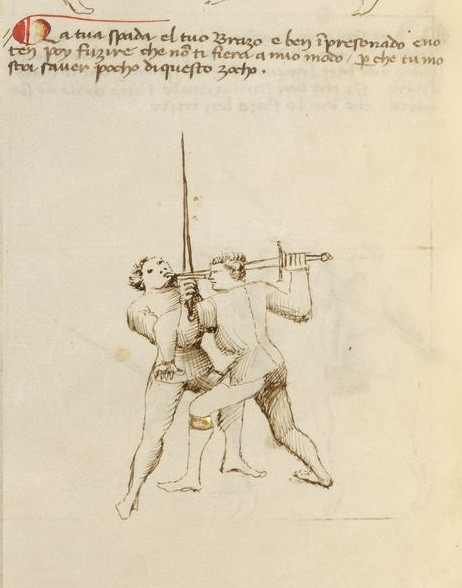 La tua spada el tuo Brazo e ben īpresonado e no
ten poy fuzire che nō ti fiera a mio modo / p che tu mo
stri saver pocho di questo zocho .